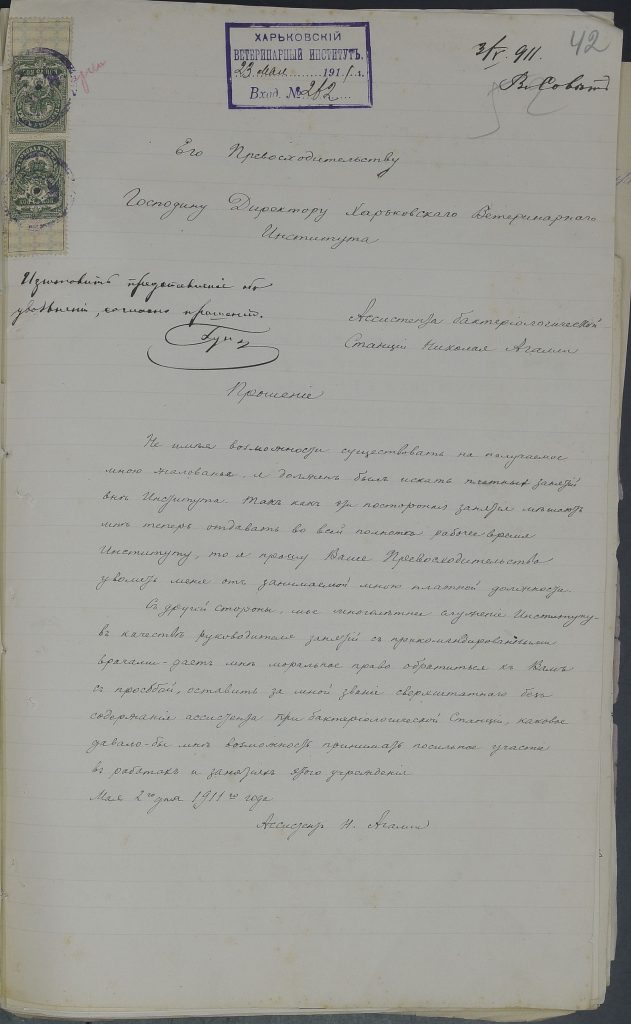 ХАРЬКОВСКІЙ
ВЕТЕРИНАРНЫЙ ИНСТИТУТЪ.
23 мая 1911 г.
Вход. № 282
3/V. 911.
42
Въ Совѣтъ
Его Превосходительству
Господину Директору Харьковскаго Ветеринарнаго
Института
Изготовить представленіе объ
увольненіи, согласно прошенія.
Ассистента бактеріологической
Станціи Николая Агалли
Прошеніе
Не имѣя возможности существовать на получаемое
мною жалованье, я долженъ былъ искать платныхъ занятій
внѣ Института. Такъ какъ эти постороннія занятія мѣшаютъ
мнѣ теперь отдавать во всей полнотѣ рабочее время
Институту, то я прошу Ваше Превосходительство
уволить меня отъ занимаемой мною платной должности.
Съ другой стороны, мое многолѣтнее служеніе Институту-
въ качествѣ руководителя занятій съ прикомандированными
врачами - даетъ мнѣ моральное право обратиться къ Вамъ
съ просьбой, оставить за мной званіе сверхштатнаго безъ
содержанія ассистента при бактеріологической Станціи, каковое
давало-бы мнѣ возможность принимать посильное участіе
въ работахъ и занятіяхъ этого учрежденія
Мая 2го дня 1911го года
Ассистентъ Н. Агалли